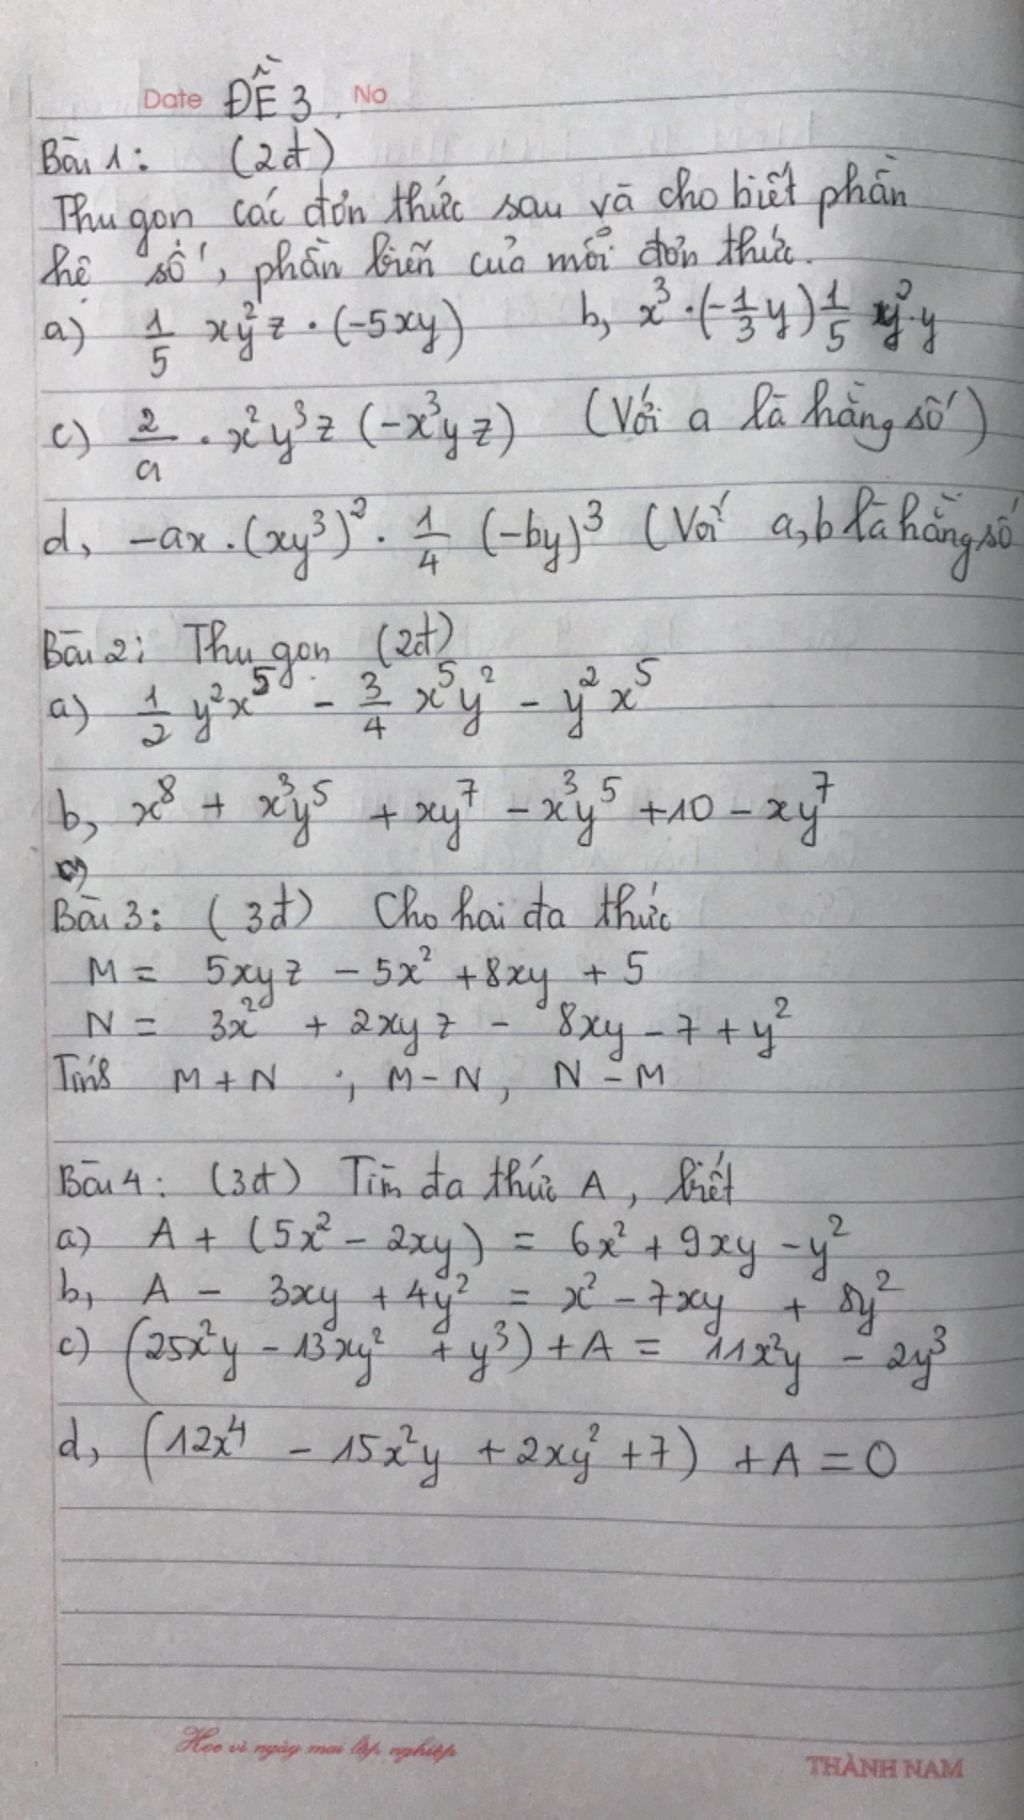 Date ĐỀ 3 No
Bài 1: (2đ)
Thu gọn các đơn thức sau và cho biết phần
hệ số, phần biến của mỗi đơn thức.
a) 1/5 xy²z · (-5xy) b, x³ · (-1/3 y) 1/5 y² · y
c) 2/a · x²y³z (-x³yz) (Với a là hằng số)
d, -ax · (xy³)² · 1/4 (-by)³ (Với a, b là hằng số
Bài 2: Thu gọn (2đ)
a) 1/2 y²x⁵ - 3/4 x⁵y² - y²x⁵
b, x⁸ + x³y⁵ + xy⁷ - x³y⁵ + 10 - xy⁷
Bài 3: (3đ) Cho hai đa thức
M = 5xyz - 5x² + 8xy + 5
N = 3x² + 2xyz - 8xy - 7 + y²
Tính M + N ; M - N, N - M
Bài 4: (3đ) Tìm đa thức A, biết
a) A + (5x² - 2xy) = 6x² + 9xy - y²
b, A - 3xy + 4y² = x² - 7xy + 8y²
c) (25x²y - 13xy² + y³) + A = 11x²y - 2y³
d, (12x⁴ - 15x²y + 2xy² + 7) + A = 0
Học vì ngày mai lập nghiệp
THÀNH NAM